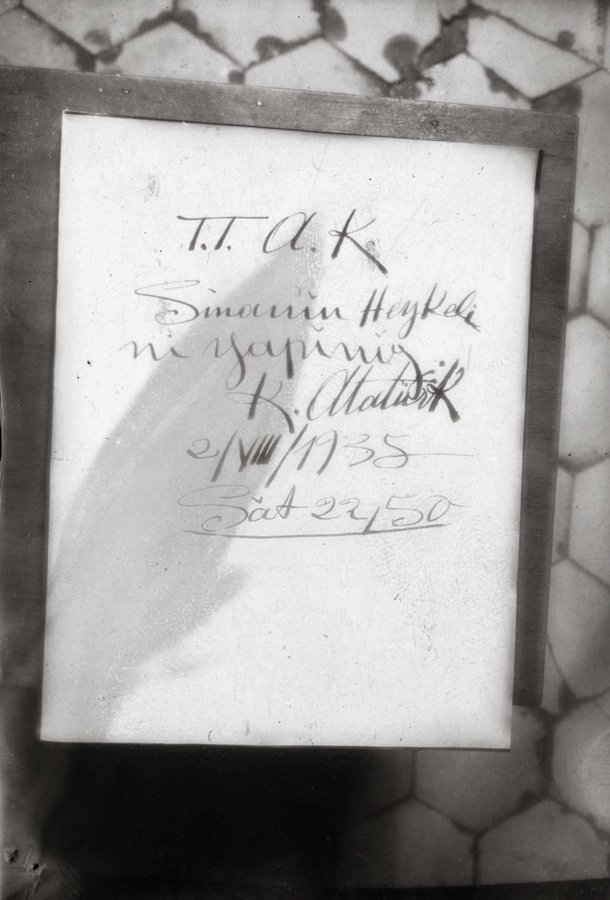 T.T. A. K
Sinanın Heykeli
ni yapınız
K. Atatürk
2/VIII/1935
Sãt 22,50